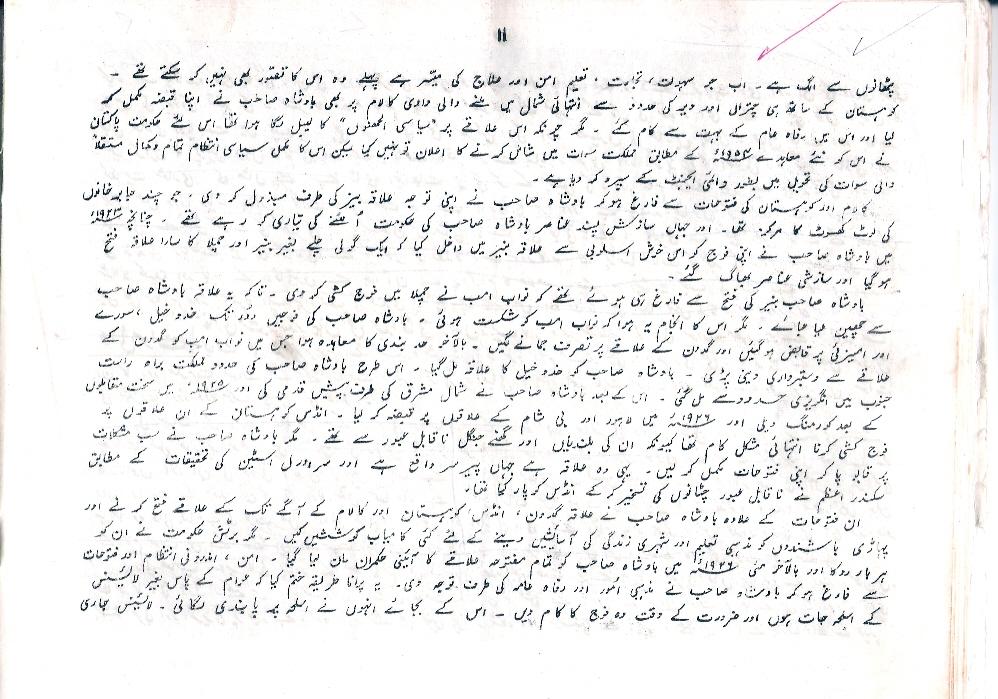 11
پٹھانوں سے الگ ہے۔ اب جو سہولت، تجارت، تعلیم امن اور علاج کی میسّر ہے پہلے وہ اس کا تصّور بھی نہیں کر سکتے تھے۔
کوہستان کے ساتھ ہی چترال اور دیر کی حدود سے انتہائی شمال میں بننے والی وادی کالام پر بھی بادشاہ صاحب نے اپنا قبضہ مکمل کر
لیا اور اس میں رفاہ عام کے بہت سے کام کئے۔ مگر چونکہ اس علاقے پر "سیاسی الجھنوں" کا لیبل لگا ہوا تھا اس لئے حکومت پاکستان
نے اس کو نئے معاہدے ۱۹۵۴ء کے مطابق مملکت سوات میں شامل کرنے کا اعلان تو نہیں کیا لیکن اس کا مکمل سیاسی انتظام تمام وکمال مستقلاً
والی سوات کی تحویل میں بطور وائی ایجنٹ کے سپرد کر دیا ہے۔
کالام اور کوہستان کی فتوحات سے فارغ ہو کر بادشاہ صاحب نے اپنی توجہ علاقہ بنیر کی طرف مبذول کر دی۔ جو چند جابر خانوں
کی لوٹ کھسوٹ کا مرکز تھا۔ اور جہاں سازش پسند عناصر بادشاہ صاحب کی حکومت الٹنے کی تیاری کر رہے تھے۔ چنانچہ ۱۹۲۳ء
میں بادشاہ صاحب نے اپنی فوج کو اس خوش اسلوبی سے علاقہ بنیر میں داخل کیا کہ ایک گولی چلے بغیر بنیر اور چملا کا سارا علاقہ فتح
ہو گیا اور سازشی عناصر بھاگ گئے۔
بادشاہ صاحب بنیر کی فتح سے فارغ ہی ہوئے تھے کہ نواب امب نے چملا میں فوج کشی کر دی۔ تاکہ یہ علاقہ بادشاہ صاحب
سے چھین لیا جائے۔ مگر اس کا انجام یہ ہوا کہ نواب امب کو شکست ہوئی۔ بادشاہ صاحب کی فوجیں دور تک خدوخیل، سورے
اور امیزئی پر قابض ہو گئیں اور گدون کے علاقے پر تصرف جمانے لگیں۔ بالآخر حد بندی کا معاہدہ ہوا جس میں نواب امب کو گدون کے
علاقے سے دستبرداری دینی پڑی۔ بادشاہ صاحب کو خدوخیل کا علاقہ مل گیا۔ اس طرح بادشاہ صاحب کی حدود مملکت براہ راست
جنوب میں انگریزی حدود سے مل گئی۔ اس کے بعد بادشاہ صاحب نے شمال مشرق کی طرف پیش قدمی کی اور ۱۹۲۵ء میں سخت مقابلوں
کے بعد کورمنگ دبئی اور ۱۹۲۶ء میں لاہور اور بی شام کے علاقوں پر قبضہ کر لیا۔ انڈس کوہستان کے ان علاقوں پر
فوج کشی کرنا انتہائی مشکل کام تھا کیونکہ ان کی بلندیاں اور گھنے جنگل ناقابل عبور سے تھے۔ مگر بادشاہ صاحب نے سب مشکلات
پر قابو پا کر اپنی فتوحات مکمل کر لیں۔ یہی وہ علاقہ ہے جہاں پیر سر واقع ہے اور سر اورل اسٹین کی تحقیقات کے مطابق
سکندر اعظم نے ناقابل عبور چٹانوں کی تسخیر کر کے انڈس کو پار کیا تھا۔
ان فتوحات کے علاوہ بادشاہ صاحب نے علاقہ گدون، انڈس کوہستان اور کالام کے آگے تک کے علاقے فتح کرنے اور
پہاڑی باشندوں کو مذہبی تعلیم اور شہری زندگی کی آسائشیں دینے کے لئے کئی کامیاب کوششیں کیں۔ مگر برٹش حکومت نے ان کو
ہر بار روکا اور بالآخر مئی ۱۹۲۶ء میں بادشاہ صاحب کو تمام مفتوحہ علاقے کا آئینی حکمران مان لیا گیا۔ امن، اندرونی انتظام اور فتوحات
سے فارغ ہو کر بادشاہ صاحب نے مذہبی امور اور رفاہ عامہ کی طرف توجہ دی۔ یہ پرانا طریقہ ختم کیا کہ عوام کے پاس بغیر لائیسنس
کے اسلحہ جات ہوں اور ضرورت کے وقت وہ فوج کا کام دیں۔ اس کے بجائے انہوں نے اسلحہ پر پابندی لگائی۔ لائیسنس جاری